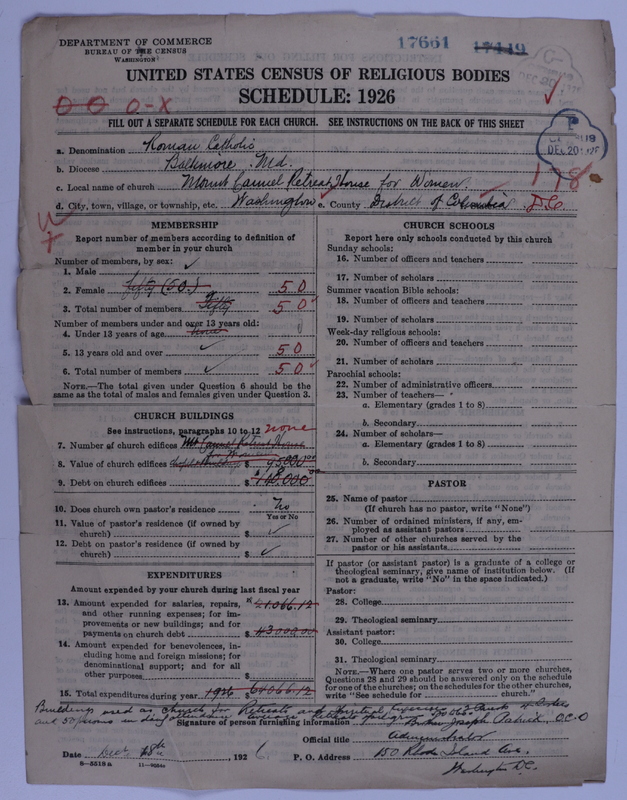 DEPARTMENT OF COMMERCE
BUREAU OF THE CENSUS
WASHINGTON
17661 17449
DEC 20
UNITED STATES CENSUS OF RELIGIOUS BODIES
SCHEDULE: 1926
O O O-X
FILL OUT A SEPARATE SCHEDULE FOR EACH CHURCH. SEE INSTRUCTIONS ON THE BACK OF THIS SHEET
a. Denomination Roman Catholic
b. Diocese Baltimore Md.
c. Local name of church Mount Carmel Retreat House for Women
178
d. City, town, village, or township, etc. Washington e. County District of Columbia D.C.
MEMBERSHIP
Report number of members according to definition of
member in your church
Number of members, by sex:
1. Male
2. Female fifty (50.) 50
3. Total number of members fifty 50
Number of members under and over 13 years old:
4. Under 13 years of age None 0
5. 13 years old and over 50
6. Total number of members 50
NOTE.—The total given under Question 6 should be the
same as the total of males and females given under Question 3.
CHURCH BUILDINGS
See instructions, paragraphs 10 to 12 none
7. Number of church edifices Mt Carmel Retreat House
for Women
8. Value of church edifices $ 95,000.00
9. Debt on church edifices $ 148,000.00
10. Does church own pastor's residence No
Yes or No
11. Value of pastor's residence (if owned by
church) $
12. Debt on pastor's residence (if owned by
church) $
EXPENDITURES
Amount expended by your church during last fiscal year
13. Amount expended for salaries, repairs,
and other running expenses; for im-
provements or new buildings; and for
payments on church debt $ 21,066.12
43000.00
14. Amount expended for benevolences, in-
cluding home and foreign missions; for
denominational support; and for all
other purposes $
15. Total expenditures during year 1926 $ 64066.12
CHURCH SCHOOLS
Report here only schools conducted by this church
Sunday schools:
16. Number of officers and teachers
17. Number of scholars
Summer vacation Bible schools:
18. Number of officers and teachers
19. Number of scholars
Week-day religious schools:
20. Number of officers and teachers
21. Number of scholars
Parochial schools:
22. Number of administrative officers
23. Number of teachers—
a. Elementary (grades 1 to 8)
b. Secondary
24. Number of scholars—
a. Elementary (grades 1 to 8)
b. Secondary
PASTOR
25. Name of pastor
(If church has no pastor, write "None")
26. Number of ordained ministers, if any, em-
ployed as assistant pastors
27. Number of other churches served by the
pastor or his assistants
If pastor (or assistant pastor) is a graduate of a college or
theological seminary, give name of institution below. (If
not a graduate, write "No" in the space indicated.)
Pastor:
28. College
29. Theological seminary
Assistant pastor:
30. College
31. Theological seminary
NOTE.—Where one pastor serves two or more churches,
Questions 28 and 29 should be answered only on the schedule
for one of the churches; on the schedules for the other churches,
write "See schedule for church."
Buildings used as church for Retreats and Spiritual Exercises
and 50 persons in
Signature of person furnishing information Brother Joseph Patrick, O.C.D
Official title Administrator
Date Dec 18th, 1926 P. O. Address 150 Rhode Island Ave.
8-5518a 11-9664
Washington D.C.